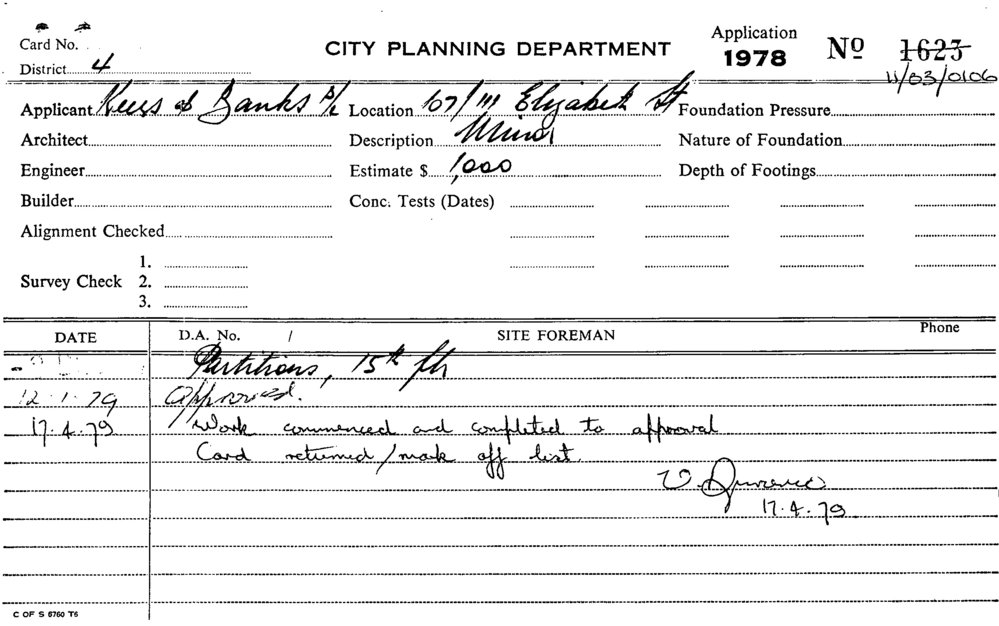 Card No.
CITY PLANNING DEPARTMENT
Application
1978
No 1623
11/03/0106
District 4
Applicant & Banks P/L
Location 107/111 Elizabeth St
Foundation Pressure
Architect
Description Minor
Nature of Foundation
Engineer
Estimate $ 1,000
Depth of Footings
Builder
Conc. Tests (Dates)
Alignment Checked
Survey Check
1.
2.
3.
DATE
D.A. No. /
SITE FOREMAN
Phone
Partitions, 15th flr
12.1.79 Approved.
17.4.79 Work commenced and completed to approval
Card returned/mark off list.
17.4.79
C OF S 6760 T6